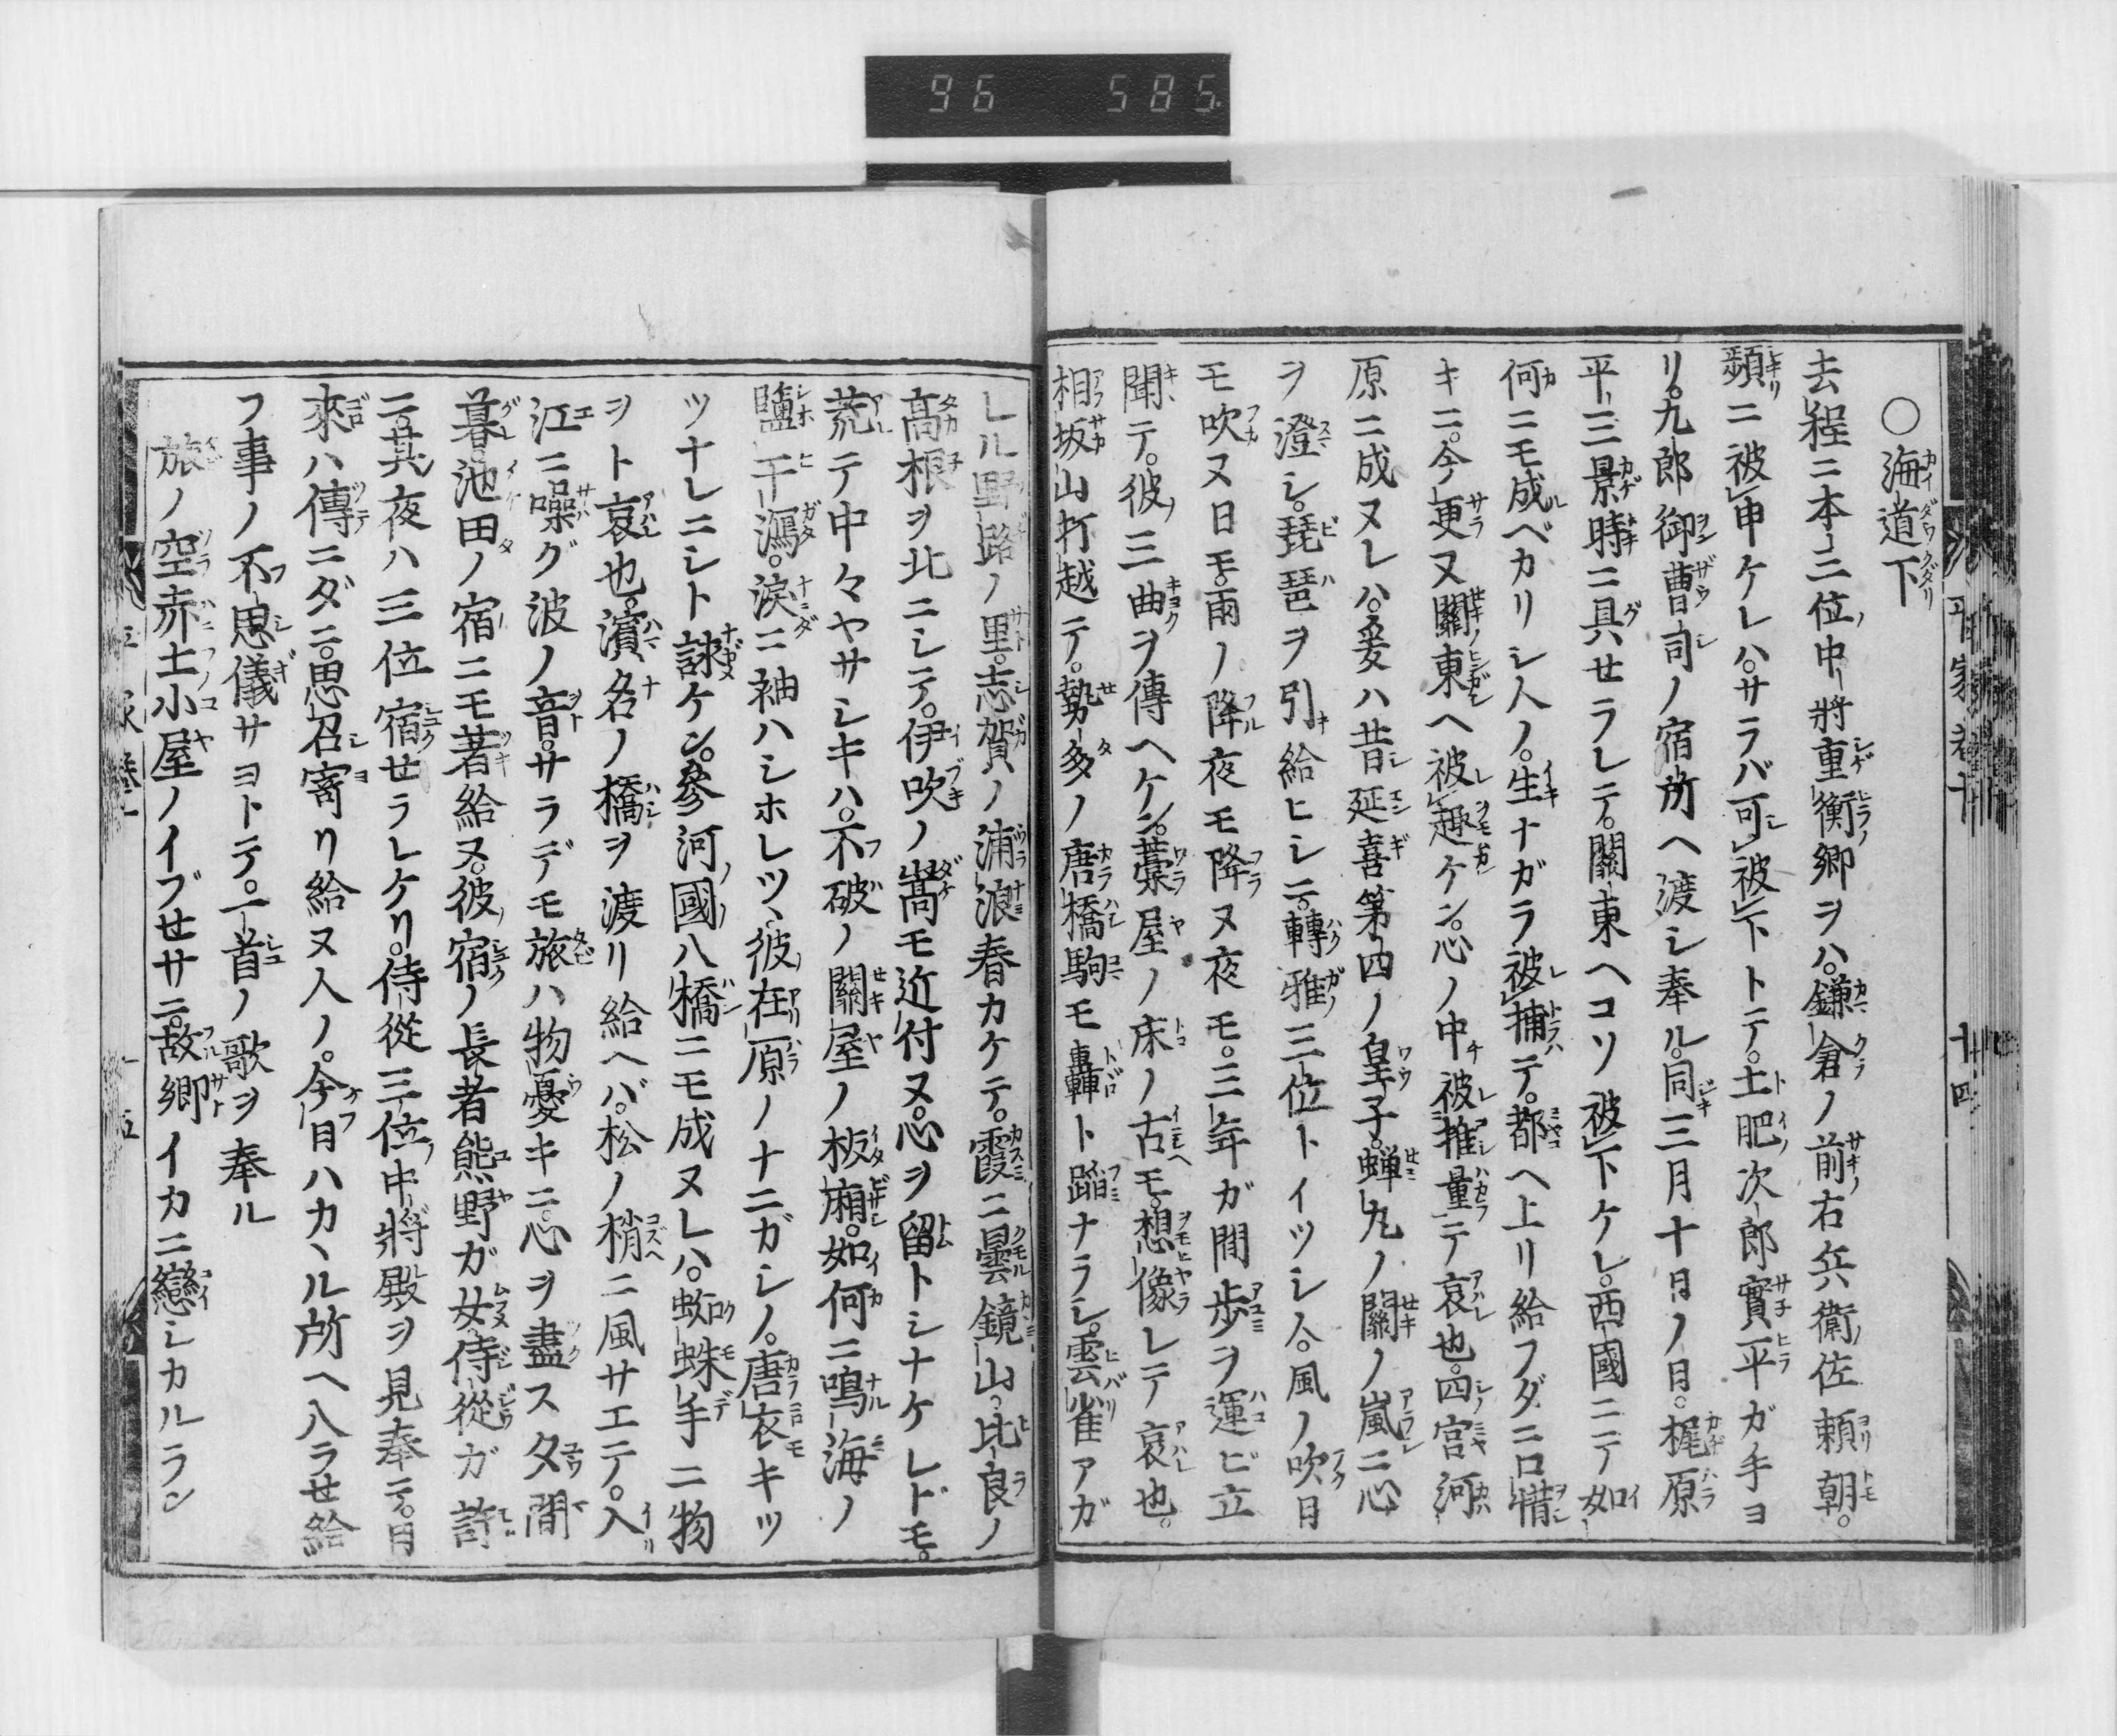 96 585
平家卷十
十四
○海道下
去程ニ本三位中將重衡卿ヲハ。鎌倉ノ前右兵衛佐賴朝。
頻ニ被申ケレハ。サラバ可被下トテ。土肥次郎實平ガ手ヨ
リ。九郎御曹司ノ宿所ヘ渡シ奉ル。同三月十日ノ日。梶原
平三景時ニ具セラレテ。關東ヘコソ被下ケレ。西國ニテ如
何ニモ成ベカリシ人ノ。生ナガラ被捕テ。都ヘ上リ給フダニ口惜
キニ。今更又關東ヘ被趣ケン。心ノ中被推量テ哀也。四宮河
原ニ成ヌレハ。爰ハ昔延喜第四ノ皇子。蝉丸ノ關ノ嵐ニ心
ヲ澄シ。琵琶ヲ引給ヒシニ。轉雅三位トイツシ人。風ノ吹日
モ吹ヌ日モ。雨ノ降夜モ降ヌ夜モ。三年ガ間歩ヲ運ビ立
聞テ。彼三曲ヲ傳ヘケン。藁屋ノ床ノ古モ。想像レテ哀也。
相坂山打越テ。勢多ノ唐橋駒モ轟ト蹈ナラシ。雲雀アガ
レル野路ノ里。志賀ノ浦浪春カケテ。霞ニ曇鏡山。比良ノ
高根ヲ北ニシテ。伊吹ノ嵩モ近付ヌ。心ヲ留トシナケレドモ。
荒テ中々ヤサシキハ。不破ノ關屋ノ板廂。如何ニ鳴海ノ
鹽干潟。涙ニ袖ハシホレツヽ。彼在原ノナニガシノ。唐衣キツ
ツナレニシト詠ケン。參河國八橋ニモ成ヌレハ。蜘蛛手ニ物
ヲト哀也。濱名ノ橋ヲ渡リ給ヘバ。松ノ梢ニ風サエテ。入
江ニ噪グ波ノ音。サラデモ旅ハ物憂キニ。心ヲ盡スタ間
暮。池田ノ宿ニモ著給ヌ。彼宿ノ長者熊野ガ女。侍從ガ許
ニ。其夜ハ三位宿セラレケリ。侍從三位中將殿ヲ見奉テ。日
來ハ傳ニダニ。思召寄リ給ヌ人ノ。今日ハカヽル所ヘ入ラせ給
フ事ノ不思儀サヨトテ。一首ノ歌ヲ奉ル
旅ノ空赤土小屋ノイブせサニ。故鄉イカニ戀シカルラン